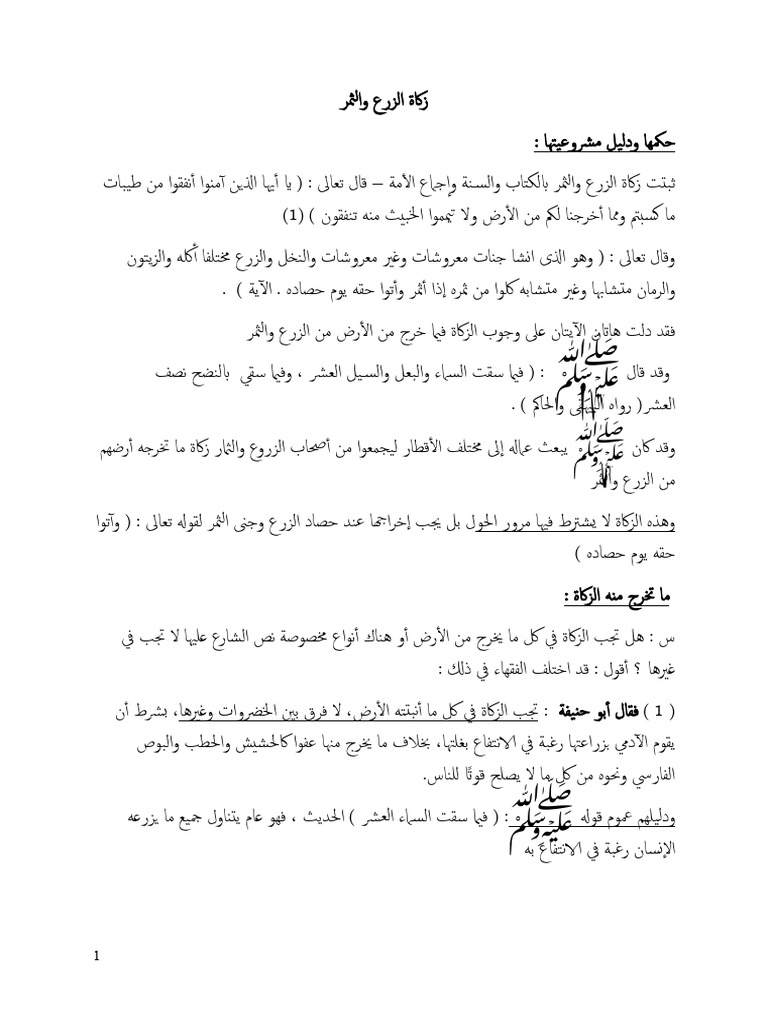 زكاة الزرع والثمر
حكمها ودليل مشروعيتها :
ثبتت زكاة الزرع والثمر بالكتاب والسنة وإجماع الأمة – قال تعالى : ( يا أيها الذين آمنوا أنفقوا من طيبات
ما كسبتم ومما أخرجنا لكم من الأرض ولا تيمموا الخبيث منه تنفقون ) (1)
وقال تعالى : ( وهو الذى انشا جنات معروشات وغير معروشات والنخل والزرع مختلفا أكله والزيتون
والرمان متشابها وغير متشابه كلوا من ثمره إذا أثمر وأتوا حقه يوم حصاده . الآية ) .
فقد دلت هاتان الآيتان على وجوب الزكاة فيما خرج من الأرض من الزرع والثمر
وقد قال صلى الله عليه وسلم : ( فيما سقت السماء والبعل والسيل العشر ، وفيما سقي بالنضح نصف
العشر( رواه البيهقى والحاكم ) .
وقد كان صلى الله عليه وسلم يبعث عماله إلى مختلف الأقطار ليجمعوا من أصحاب الزروع والثمار زكاة ما تخرجه أرضهم
من الزرع والثمر
وهذه الزكاة لا يشترط فيها مرور الحول بل يجب إخراجها عند حصاد الزرع وجنى الثمر لقوله تعالى : ( وآتوا
حقه يوم حصاده )
ما تخرج منه الزكاة :
س : هل تجب الزكاة في كل ما يخرج من الأرض أو هناك أنواع مخصوصة نص الشارع عليها لا تجب في
غيرها ؟ أقول : قد اختلف الفقهاء في ذلك :
( 1 ) فقال أبو حنيفة : تجب الزكاة في كل ما أنبتته الأرض، لا فرق بين الخضروات وغيرها، بشرط أن
يقوم الآدمي بزراعتها رغبة في الانتفاع بغلتها، بخلاف ما يخرج منها عفوا كالحشيش والحطب والبوص
الفارسي ونحوه من كل ما لا يصلح قوتًا للناس.
ودليلهم عموم قوله صلى الله عليه وسلم : ( فيما سقت السماء العشر ) الحديث ، فهو عام يتناول جميع ما يزرعه
الإنسان رغبة في الانتفاع به
1